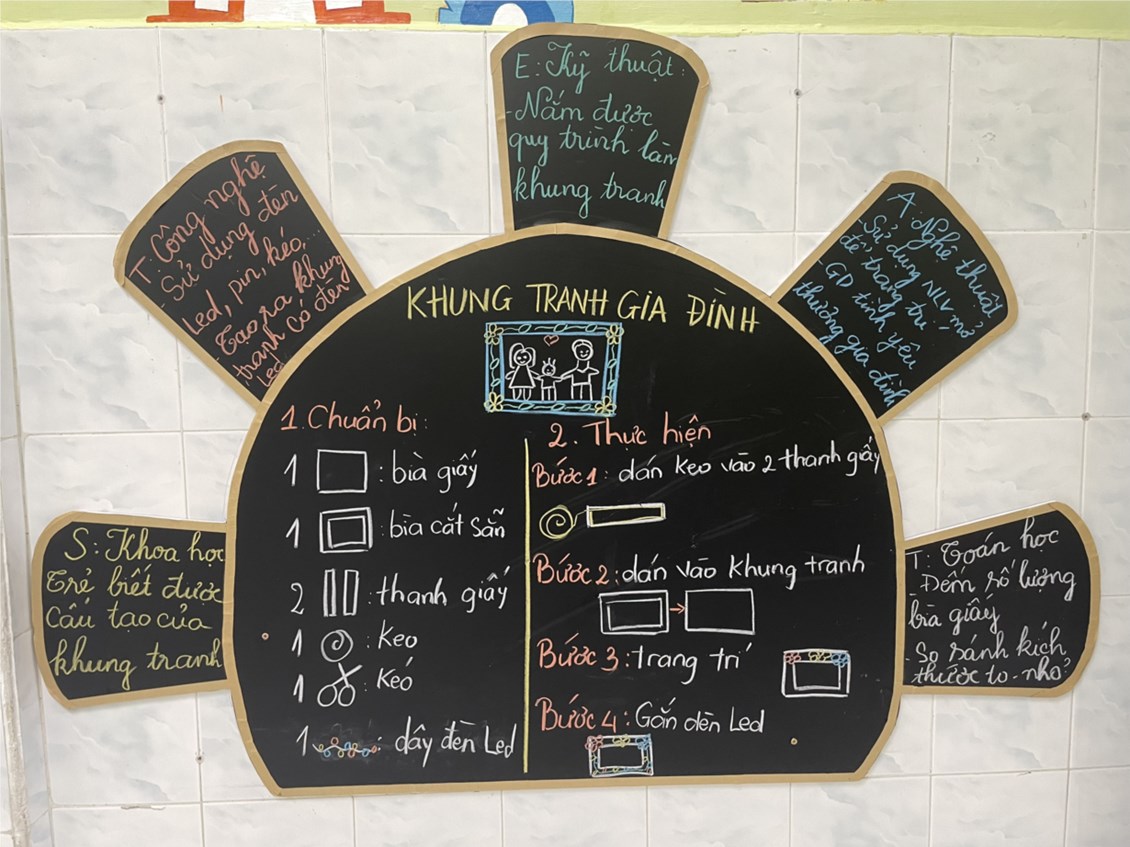 E: Kỹ thuật:
- Nắm được
quy trình làm
khung tranh
T: Công nghệ
- Sử dụng đèn
Led, pin, kéo,...
- Tạo ra khung
tranh có đèn
Led
A: Nghệ thuật
- Sử dụng NLV mở
để trang trí
- GD tình yêu
thương gia đình
S: Khoa học
Trẻ biết được
Cấu tạo của
khung tranh
T: Toán học
- Đếm số lượng
bìa giấy
- So sánh kích
thước to - nhỏ
KHUNG TRANH GIA ĐÌNH
1. Chuẩn bị:
1 : bìa giấy
1 : bìa cắt sẵn
2 : thanh giấy
1 : Keo
1 : Kéo
1 : dây đèn Led
2. Thực hiện
Bước 1: dán keo vào 2 thanh giấy
Bước 2: dán vào khung tranh
Bước 3: trang trí
Bước 4: Gắn đèn Led